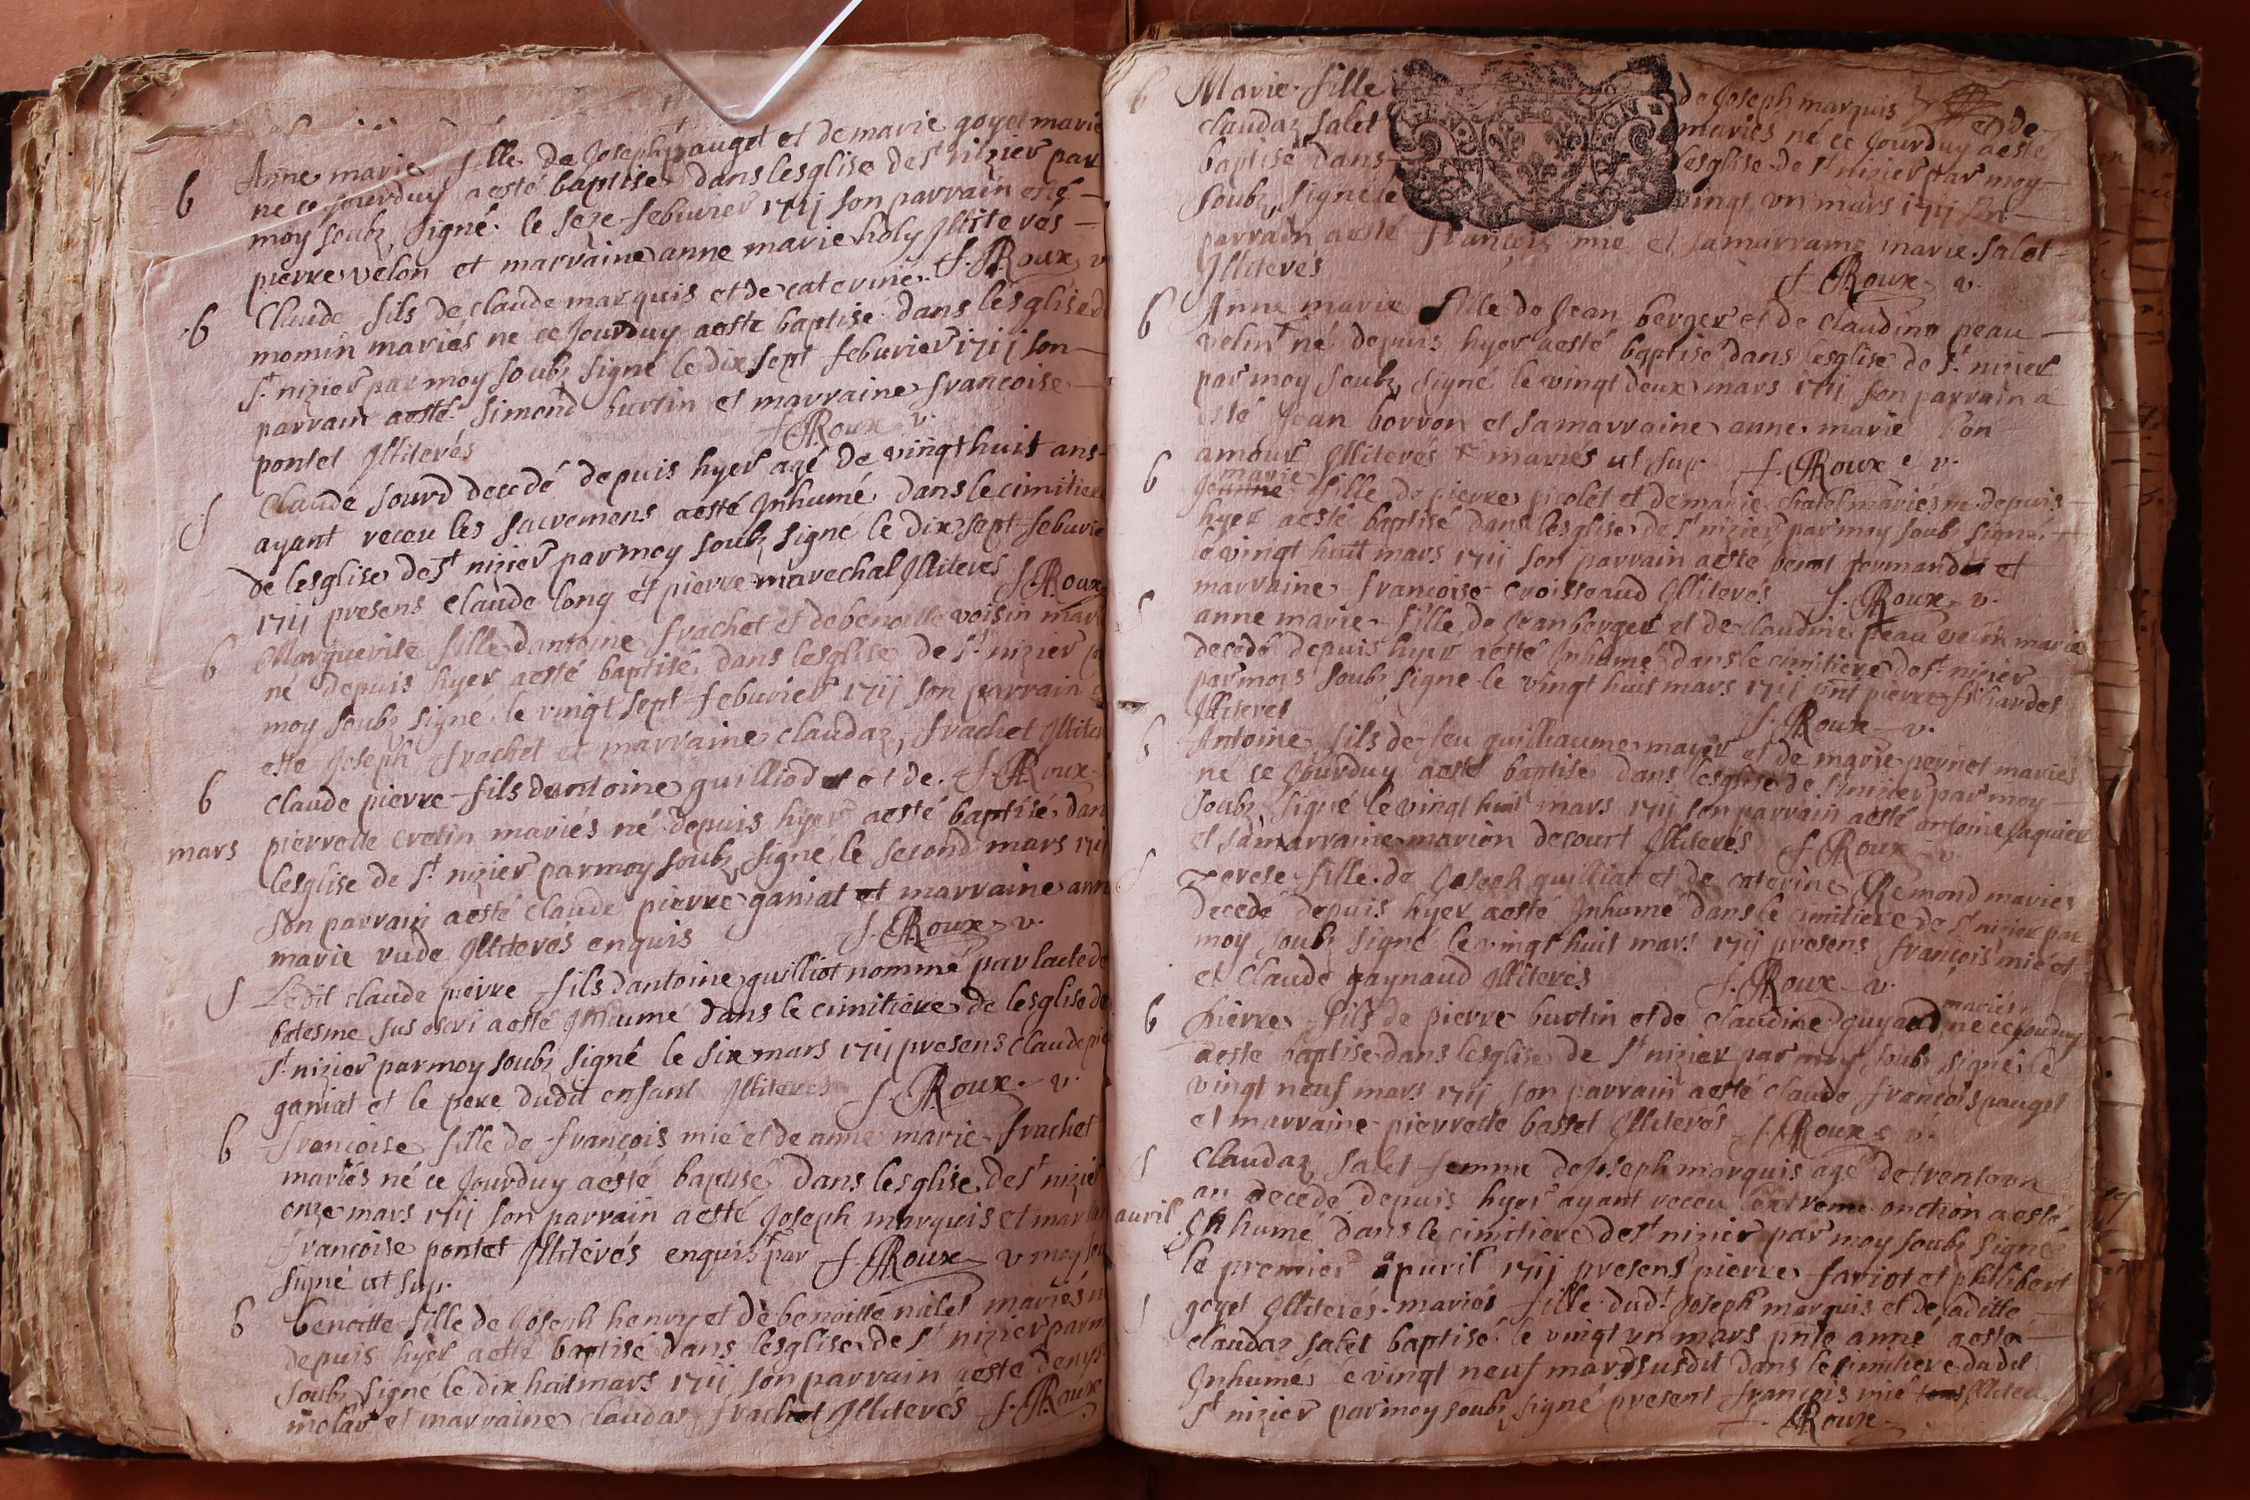 b Anne marie fille de Joseph pauget et de marie goyet marié
né ce Jourduy aesté baptisé dans lesglise de St nizier par
moy soubz signé le seze feburier 1711 son parrain esté
pierre velon et marraine anne marie holy Illiteres
f. Roux v
b Claude fils de claude marquis et de caterine
momin mariés né ce Jourduy aesté baptisé dans lesglise d
St nizier par moy soubz signé le dix sept feburier 1711 son
parrain aesté Simond burtin et marraine francoise
pontet Illiterés f Roux v.
S Claude sourd decedé depuis hyer agé de vingt huit ans
ayant receu les sacremens aesté Inhumé dans le cimitiere
de lesglise de St nizier par moy soubz signé le dix sept feburie
1711 presens claude long et pierre marechal Illiteres f. Roux
b Marguerite fille dantoine frachet et de benoitte voisin mar
né depuis hyer aesté baptisé dans lesglise de St nizier
moy soubz signé le vingt sept feburier 1711 son parrain
esté Joseph frachet et marraine claudaz frachet Illiter
b claude pierre fils dantoine guilliod et de f. Roux
mars pierrette cretin mariés né depuis hyer aesté baptisé dan
lesglise de St nizier par moy soubz signé le second mars 171
son parrain aesté claude pierre ganiat et marraine ann
marie rude Illiterés enquis f. Roux v.
S Ledit claude pierre fils dantoine guilliot nommé par lacte de
batesme sus escri aesté Inhumé dans le cimitiere de lesglise de
St nizier par moy soubz signé le six mars 1711 presens claude pie
ganiat et le pere dudit enfant Illiteres f. Roux v.
b francoise fille de françois mié et de anne marie frachet
mariés né ce Jourduy aesté baptisé dans lesglise de St nizier
onze mars 1711 son parrain aesté Joseph marquis et mar
francoise pontet Illiterés enquis par f. Roux v moy sou
signé ut sup.
b benoitte fille de Joseph henry et de benoitte mariés n
depuis hyer aesté baptisé dans lesglise de St nizier par m
soubz signé le dix huit mars 1711 son parrain aesté denys
melar et marraine claudaz frachet Illiterés f. Roux
b Marie fille de Joseph marquis et de
claudaz salet mariés né ce Jourduy aesté
baptisé dans lesglise de St nizier par moy
soubz signé le vingt vn mars 1711 son
parrain aesté françois mie et sa marraine marie salet
Illiterés f Roux v.
b Anne marie fille de Jean berger et de claudine peau
velint né depuis hyer aesté baptisé dans lesglise de St nizier
par moy soubz signé le vingt deux mars 1711 son parrain a
esté Jean borron et sa marraine anne marie bon
amour Illiterés mariés ut sup f. Roux v.
marie
b Jeanne fille de pierre picolet et de marie chatel mariés né depuis
hyer aesté baptisé dans lesglise de St nizier par moy soub signé
le vingt huit mars 1711 son parrain aesté benoit et
marraine francoise croisseaud Illiterés f. Roux v.
S anne marie fille de Jean berger et de claudine peau velin marié
decedé depuis hyer aesté Inhumé dans le cimitiere de St nizier
par moy soubz signé le vingt huit mars 1711 pnt pierre
Illiteres f. Roux v.
b Antoine fils de feu guilliaume mayer et de marie pernet mariés
né ce Jourduy aesté baptisé dans lesglise de St nizier par moy
soubz signé le vingt huit mars 1711 son parrain aesté antoine saquier
et sa marraine marion decourt Illiterés f. Roux v.
S Terese fille de Joseph guilliat et de caterine Remond mariés
decedé depuis hyer aesté Inhumé dans le cimitiere de St nizier par
moy soubz signé le vingt huit mars 1711 presens françois mié et
et claude gaynaud Illiterés f. Roux v.
mariés
b pierre fils de pierre burtin et de claudine guyaud né ce Jourduy
aesté baptisé dans lesglise de St nizier par moy soubz signé le
vingt neuf mars 1711 son parrain aesté claude françois pauget
et marraine pierrette basset Illiterés f. Roux v.
S claudaz salet femme de Joseph marquis agé de trente vn
an decedé depuis hyer ayant receu lextreme onction aesté
avril Inhumé dans le cimitiere de St nizier par moy soubz signé
le premier apuril 1711 presens pierre fariot et philibert
goyet Illiterés mariés fille dudt Joseph marquis et de laditte
claudaz salet baptisé le vingt vn mars pnte anné aesté
Inhumé le vingt neuf mars susdit dans le cimitiere dudit
St nizier par moy soubz signé present françois mié Illiteré
Roux